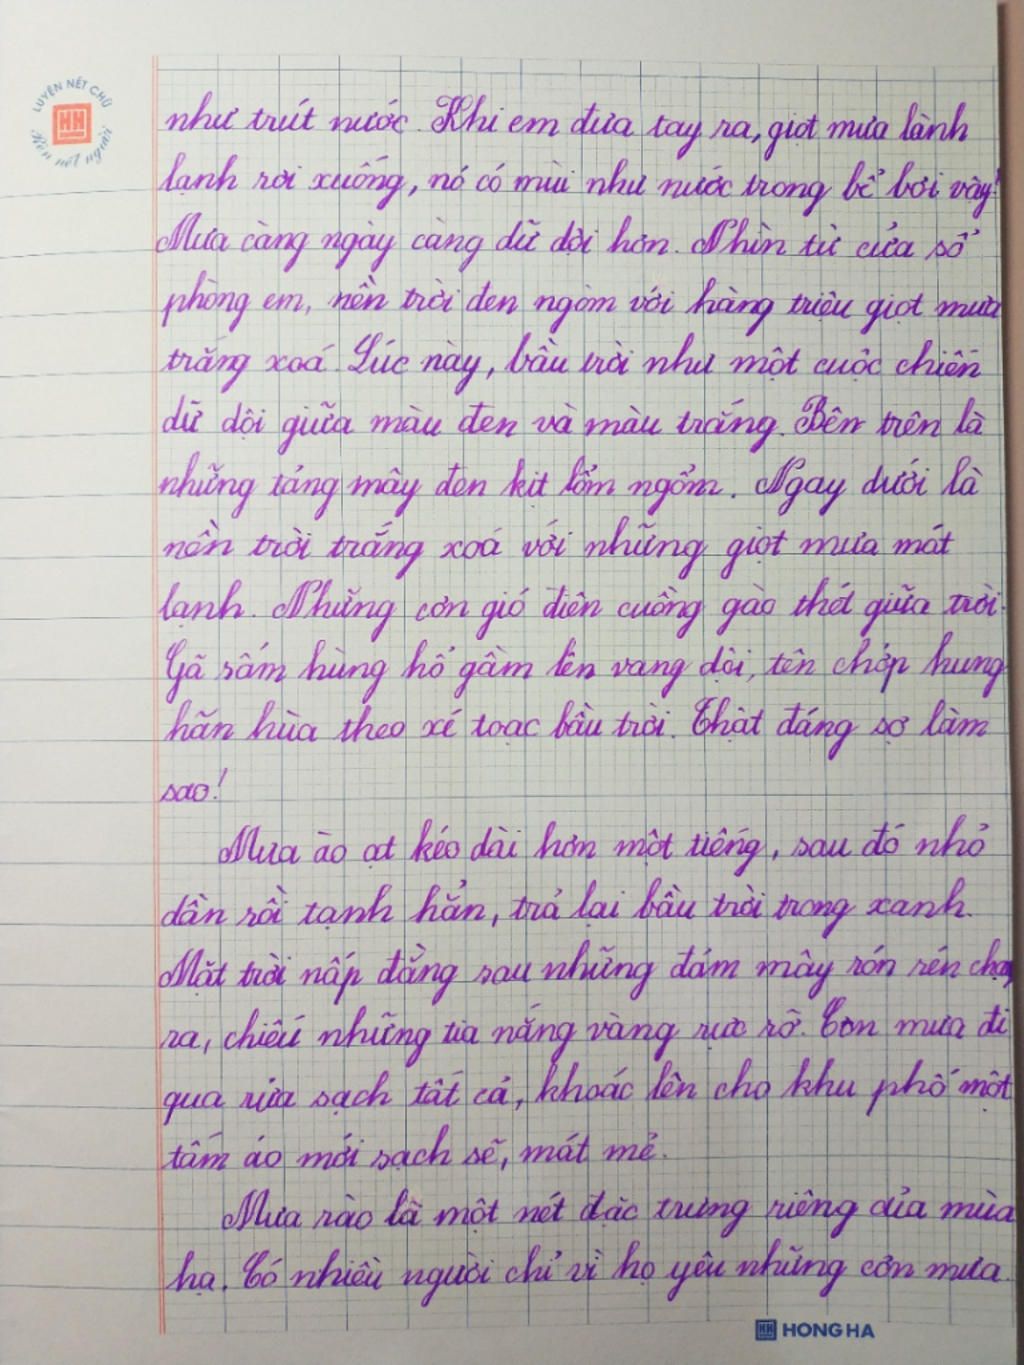 LUYỆN NÉT CHỮ
HH
Rèn nết người
như trút nước. Khi em đưa tay ra, giọt mưa lành
lạnh rơi xuống, nó có mùi như nước trong bể bơi vậy!
Mưa càng ngày càng dữ dội hơn. Nhìn từ cửa sổ
phòng em, nền trời đen ngòm với hàng triệu giọt mưa
trắng xoá. Lúc này, bầu trời như một cuộc chiến
dữ dội giữa màu đen và màu trắng. Bên trên là
những tảng mây đen kịt lổm ngổm. Ngay dưới là
nền trời trắng xoá với những giọt mưa mát
lạnh. Những cơn gió điên cuồng gào thét giữa trời.
Gã sấm hùng hổ gầm lên vang dội, tên chớp hung
hãn hùa theo xé toạc bầu trời. Thật đáng sợ làm
sao!
Mưa ào ạt kéo dài hơn một tiếng, sau đó nhỏ
dần rồi tạnh hẳn, trả lại bầu trời trong xanh.
Mặt trời nấp đằng sau những đám mây rón rén chạy
ra, chiếu những tia nắng vàng rực rỡ. Cơn mưa đi
qua rửa sạch tất cả, khoác lên cho khu phố một
tấm áo mới sạch sẽ, mát mẻ.
Mưa rào là một nét đặc trưng riêng của mùa
hạ. Có nhiều người chỉ vì họ yêu những cơn mưa
HH HONG HA